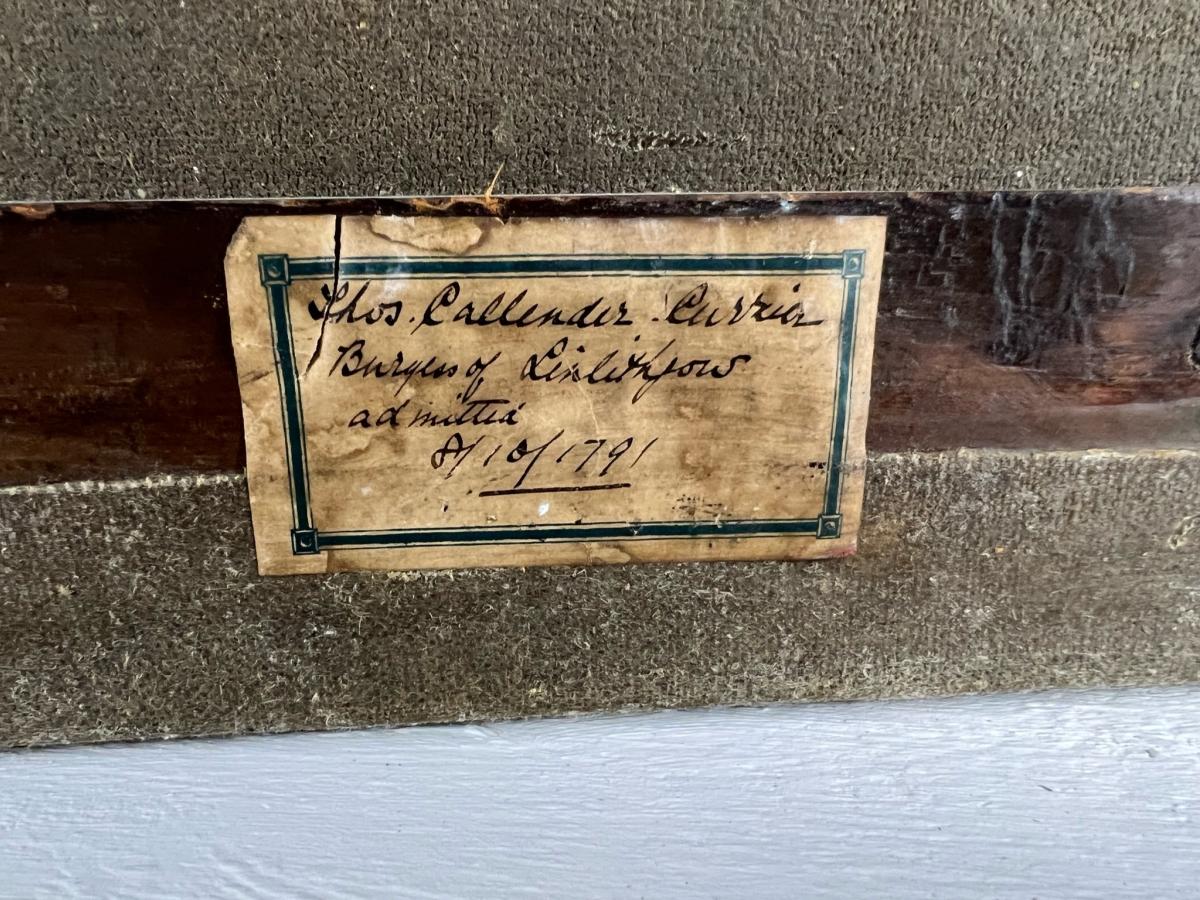 Thos. Callender. Currier
Burgess of Linlithgow
admitted
8/10/1791